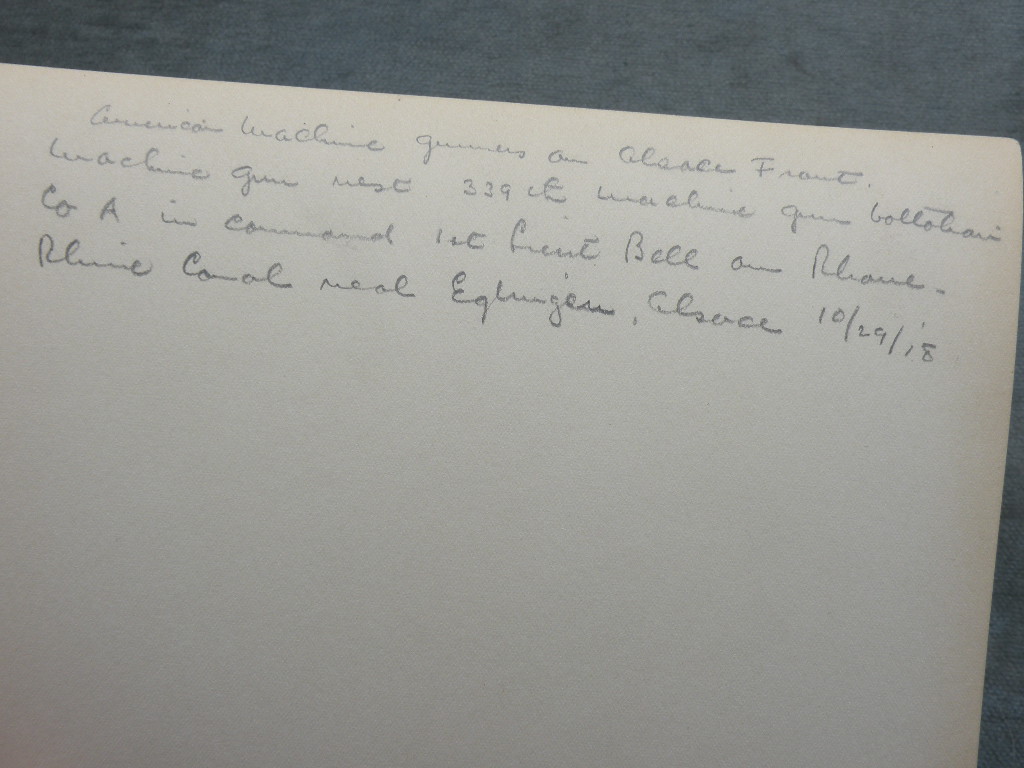 American Machine gunners on Alsace Front.
Machine gun nest 339 th Machine gun battalion
Co A in command 1st Lieut Bell on Rhone-
Rhine Canal near Eglingen, Alsace 10/29/18